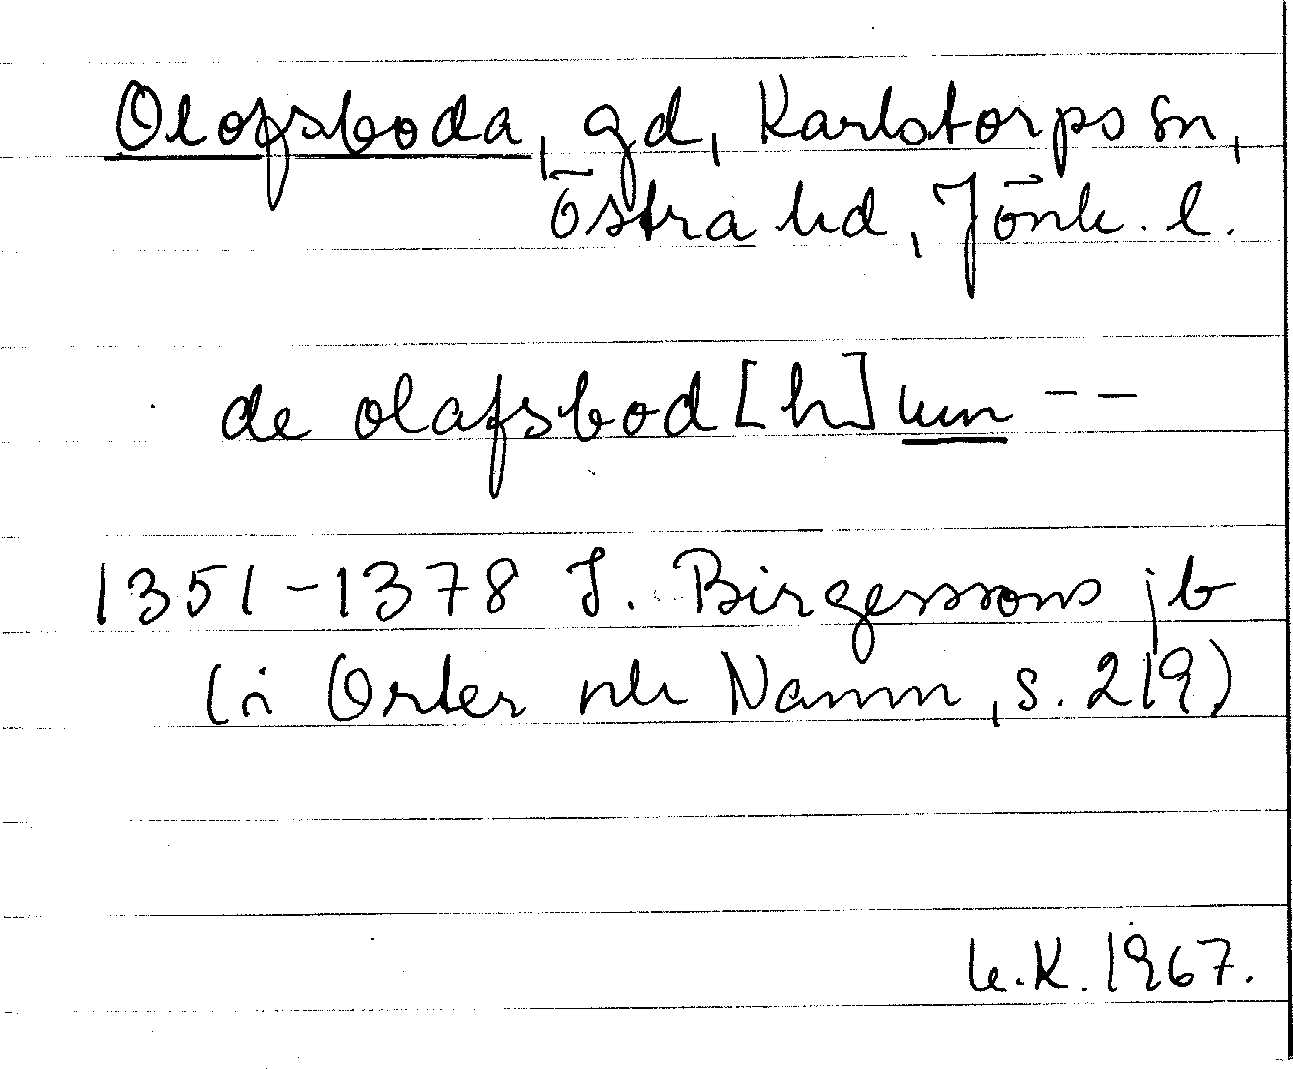 Olofsboda, gd, Karlstorps sn,
Östra hd, Jönk. l.
de olafsbod [h] um --
1351-1378 J. Birgerssons jb
(i Orter och Namn, s. 219)
K. 1967.